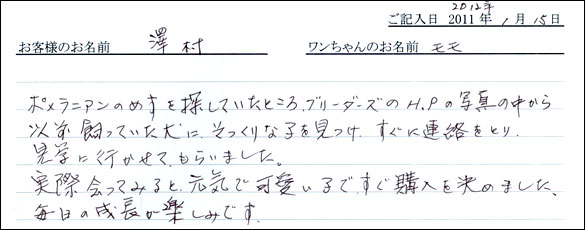 2012年
ご記入日 2011年 1月 15日
お客様のお名前 澤村 ワンちゃんのお名前 モモ
ポメラニアンのめすを探していたところ、ブリーダーズのH.Pの写真の中から
以前飼っていた犬に、そっくりな子を見つけ、すぐに連絡をとり、
見学に行かせて、もらいました。
実際会ってみると、元気で可愛い子で、すぐ購入を決めました、
毎日の成長が楽しみです.